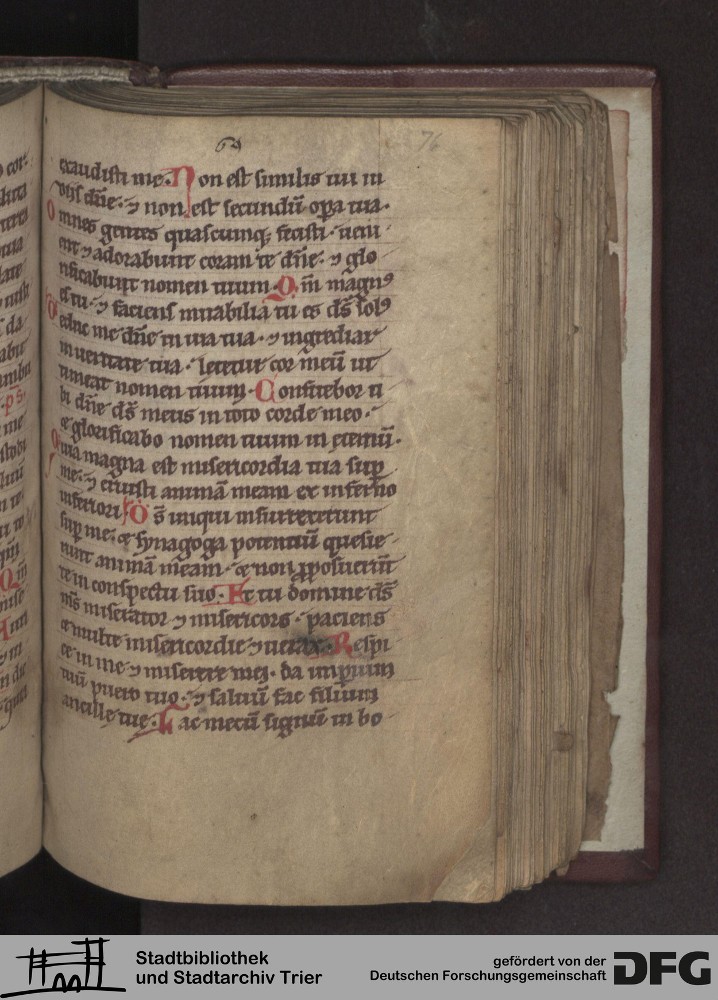 69
76
exaudisti me. Non est similis tui in
diis dn̄e. ⁊ non est secundū opa tua.
Omnes gentes quascumq; fecisti. ueni
ent ⁊ adorabunt coram te dn̄e. ⁊ glo
rificabunt nomen tuum. Qm̄ magnꝰ
es tu. ⁊ faciens mirabilia tu es ds̄ solꝰ
Deduc me dn̄e in uia tua. ⁊ ingrediar
in ueritate tua. letetur cor meū ut
timeat nomen tuum. Confitebor ti
bi dn̄e ds̄ meus in toto corde meo.
⁊ glorificabo nomen tuum in eternū.
Quia magna est misericordia tua sup
me. ⁊ eruisti animā meam ex inferno
inferiori. Ds̄ iniqui insurrexerunt
sup me. ⁊ synagoga potentiū quesie
runt animā meam. ⁊ non pposuerūt
te in conspectu suo. Et tu domine ds̄
ms̄ miserator ⁊ misericors. paciens
⁊ multe misericordie ⁊ uerax. Respi
ce in me ⁊ miserere mei. da imperium
tuū puero tuo. ⁊ saluū fac filium
ancille tue. Fac mecū signū in bo
Stadtbibliothek
und Stadtarchiv Trier
gefördert von der
Deutschen Forschungsgemeinschaft
DFG